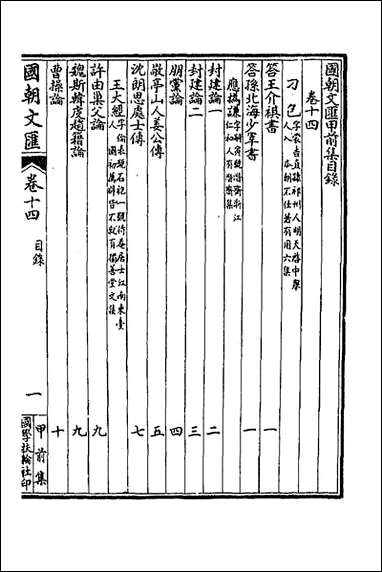 國朝文匯甲前集目錄
卷十四
刁包字蒙吉直隸祁州人明天啓中舉人入本朝不仕著有用六集
答王介祺書 一
答孫北海少宰書 一
應撝謙字
封建論一 二
封建論二 三
朋黨論 四
敬亭山人姜公傳 五
沈朗思處士傳 七
王大經字倫表號石袍一號待菴居士江南東臺人國初薦辟皆不就有獨善堂文集
許由巢父論 九
魏斯韓虔趙籍論 九
曹操論 十
國朝文匯 卷十四 目錄 一 甲前集 國學扶輪社印